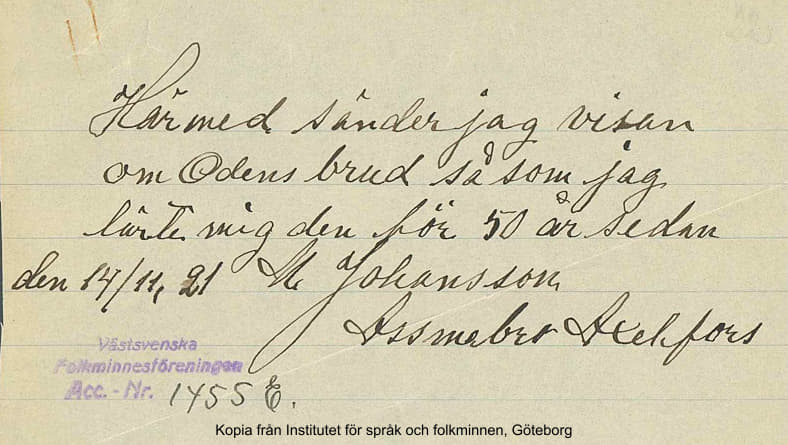 Härmed sänder jag visan
om Odens brud så som jag
lärte mig den för 50 år sedan
den 14/11, 21 M Johansson
Assmebro Axelfors
Västsvenska
Folkminnesföreningen
Acc. - Nr. 1455 E.
Kopia från Institutet för språk och folkminnen, Göteborg